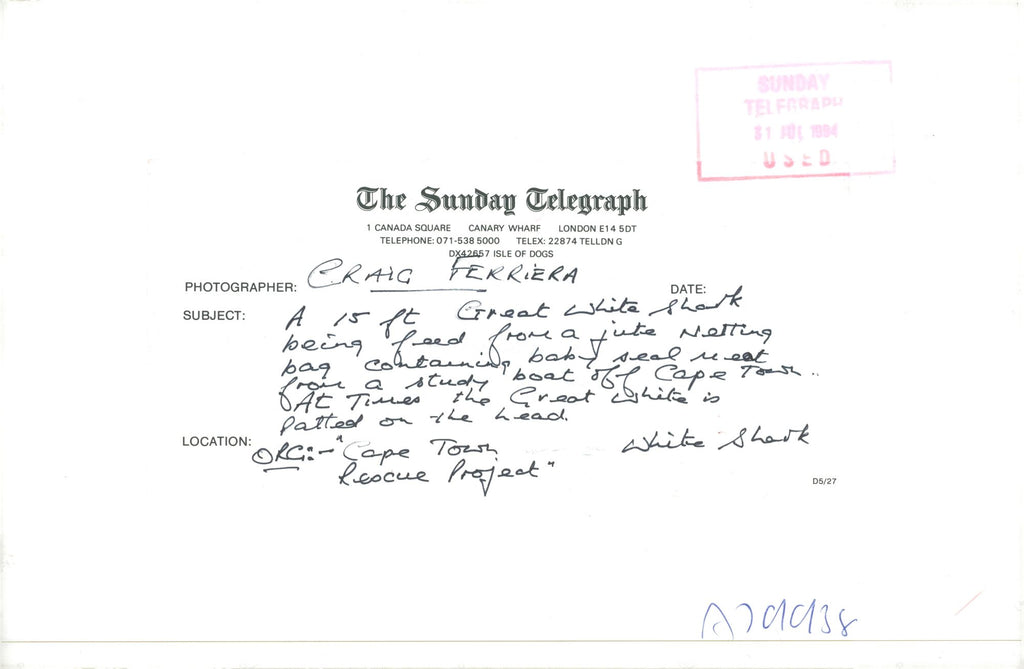 SUNDAY
TELEGRAPH
31 JUL 1994
USED
The Sunday Telegraph
1 CANADA SQUARE CANARY WHARF LONDON E14 5DT
TELEPHONE: 071-538 5000 TELEX: 22874 TELLDN G
DX42657 ISLE OF DOGS
PHOTOGRAPHER: CRAIG FERRIERA
DATE:
SUBJECT: A 15 ft Great White Shark
being feed from a jute Netting
bag containing baby seal meat
from a study boat off Cape Town ..
At Times the Great White is
Patted on the head.
LOCATION: ORG:- "Cape Town White Shark
Rescue Project"
D5/27